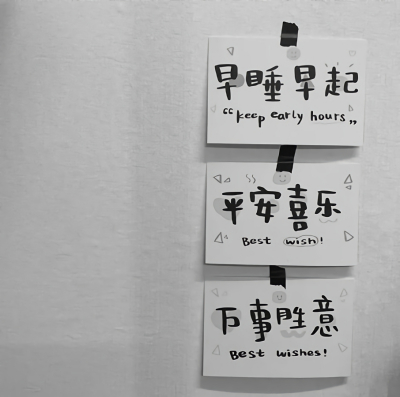 早睡早起
“keep early hours„
平安喜乐
Best wish!
万事胜意
Best wishes!